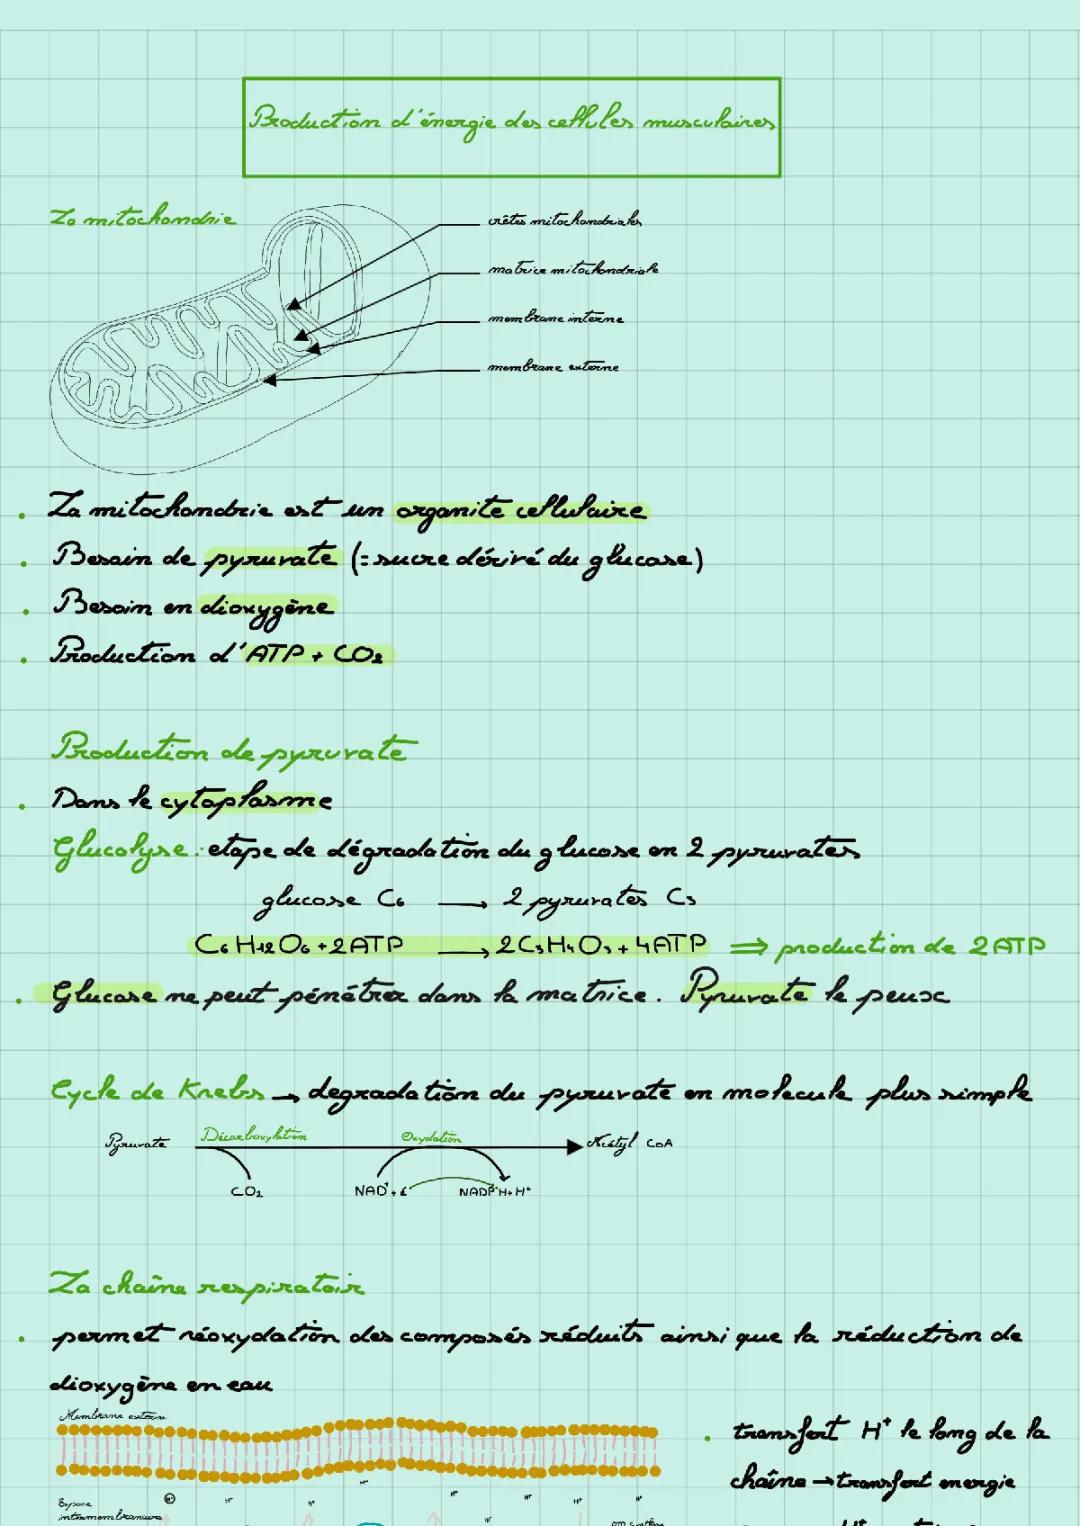 Production d'énergie des cellules musculaires
La mitochondrie
crêtes mitochondriales
matrice mitochondriale
membrane interne
membrane externe
. La mitochondrie est un organite cellulaire
. Besoin de pyruvate (= sucre dérivé du glucose)
. Besoin en dioxygène
. Production d'ATP + CO2
Production de pyruvate
. Dans le cytoplasme
Glucolyse : etape de dégradation du glucose en 2 pyruvates
glucose C6 → 2 pyruvates C3
C6H12O6 + 2ATP → 2C3H4O3 + 4ATP ⇒ production de 2ATP
. Glucose ne peut pénétrer dans la matrice. Pyruvate le peux
Cycle de Krebs → degradation du pyruvate en molecule plus simple
Pyruvate Décarboxylation Oxydation Acétyl CoA
CO2 NAD+ + é NADP H + H+
La chaîne respiratoir
. permet réoxydation des composés réduits ainsi que la réduction de
dioxygène en eau
Membrane externe
. transfert H+ le long de la
chaîne → transfert energie
Espace
intermembranaire
H+ H+ H+ H+ H+ H+ H+ H+ H+